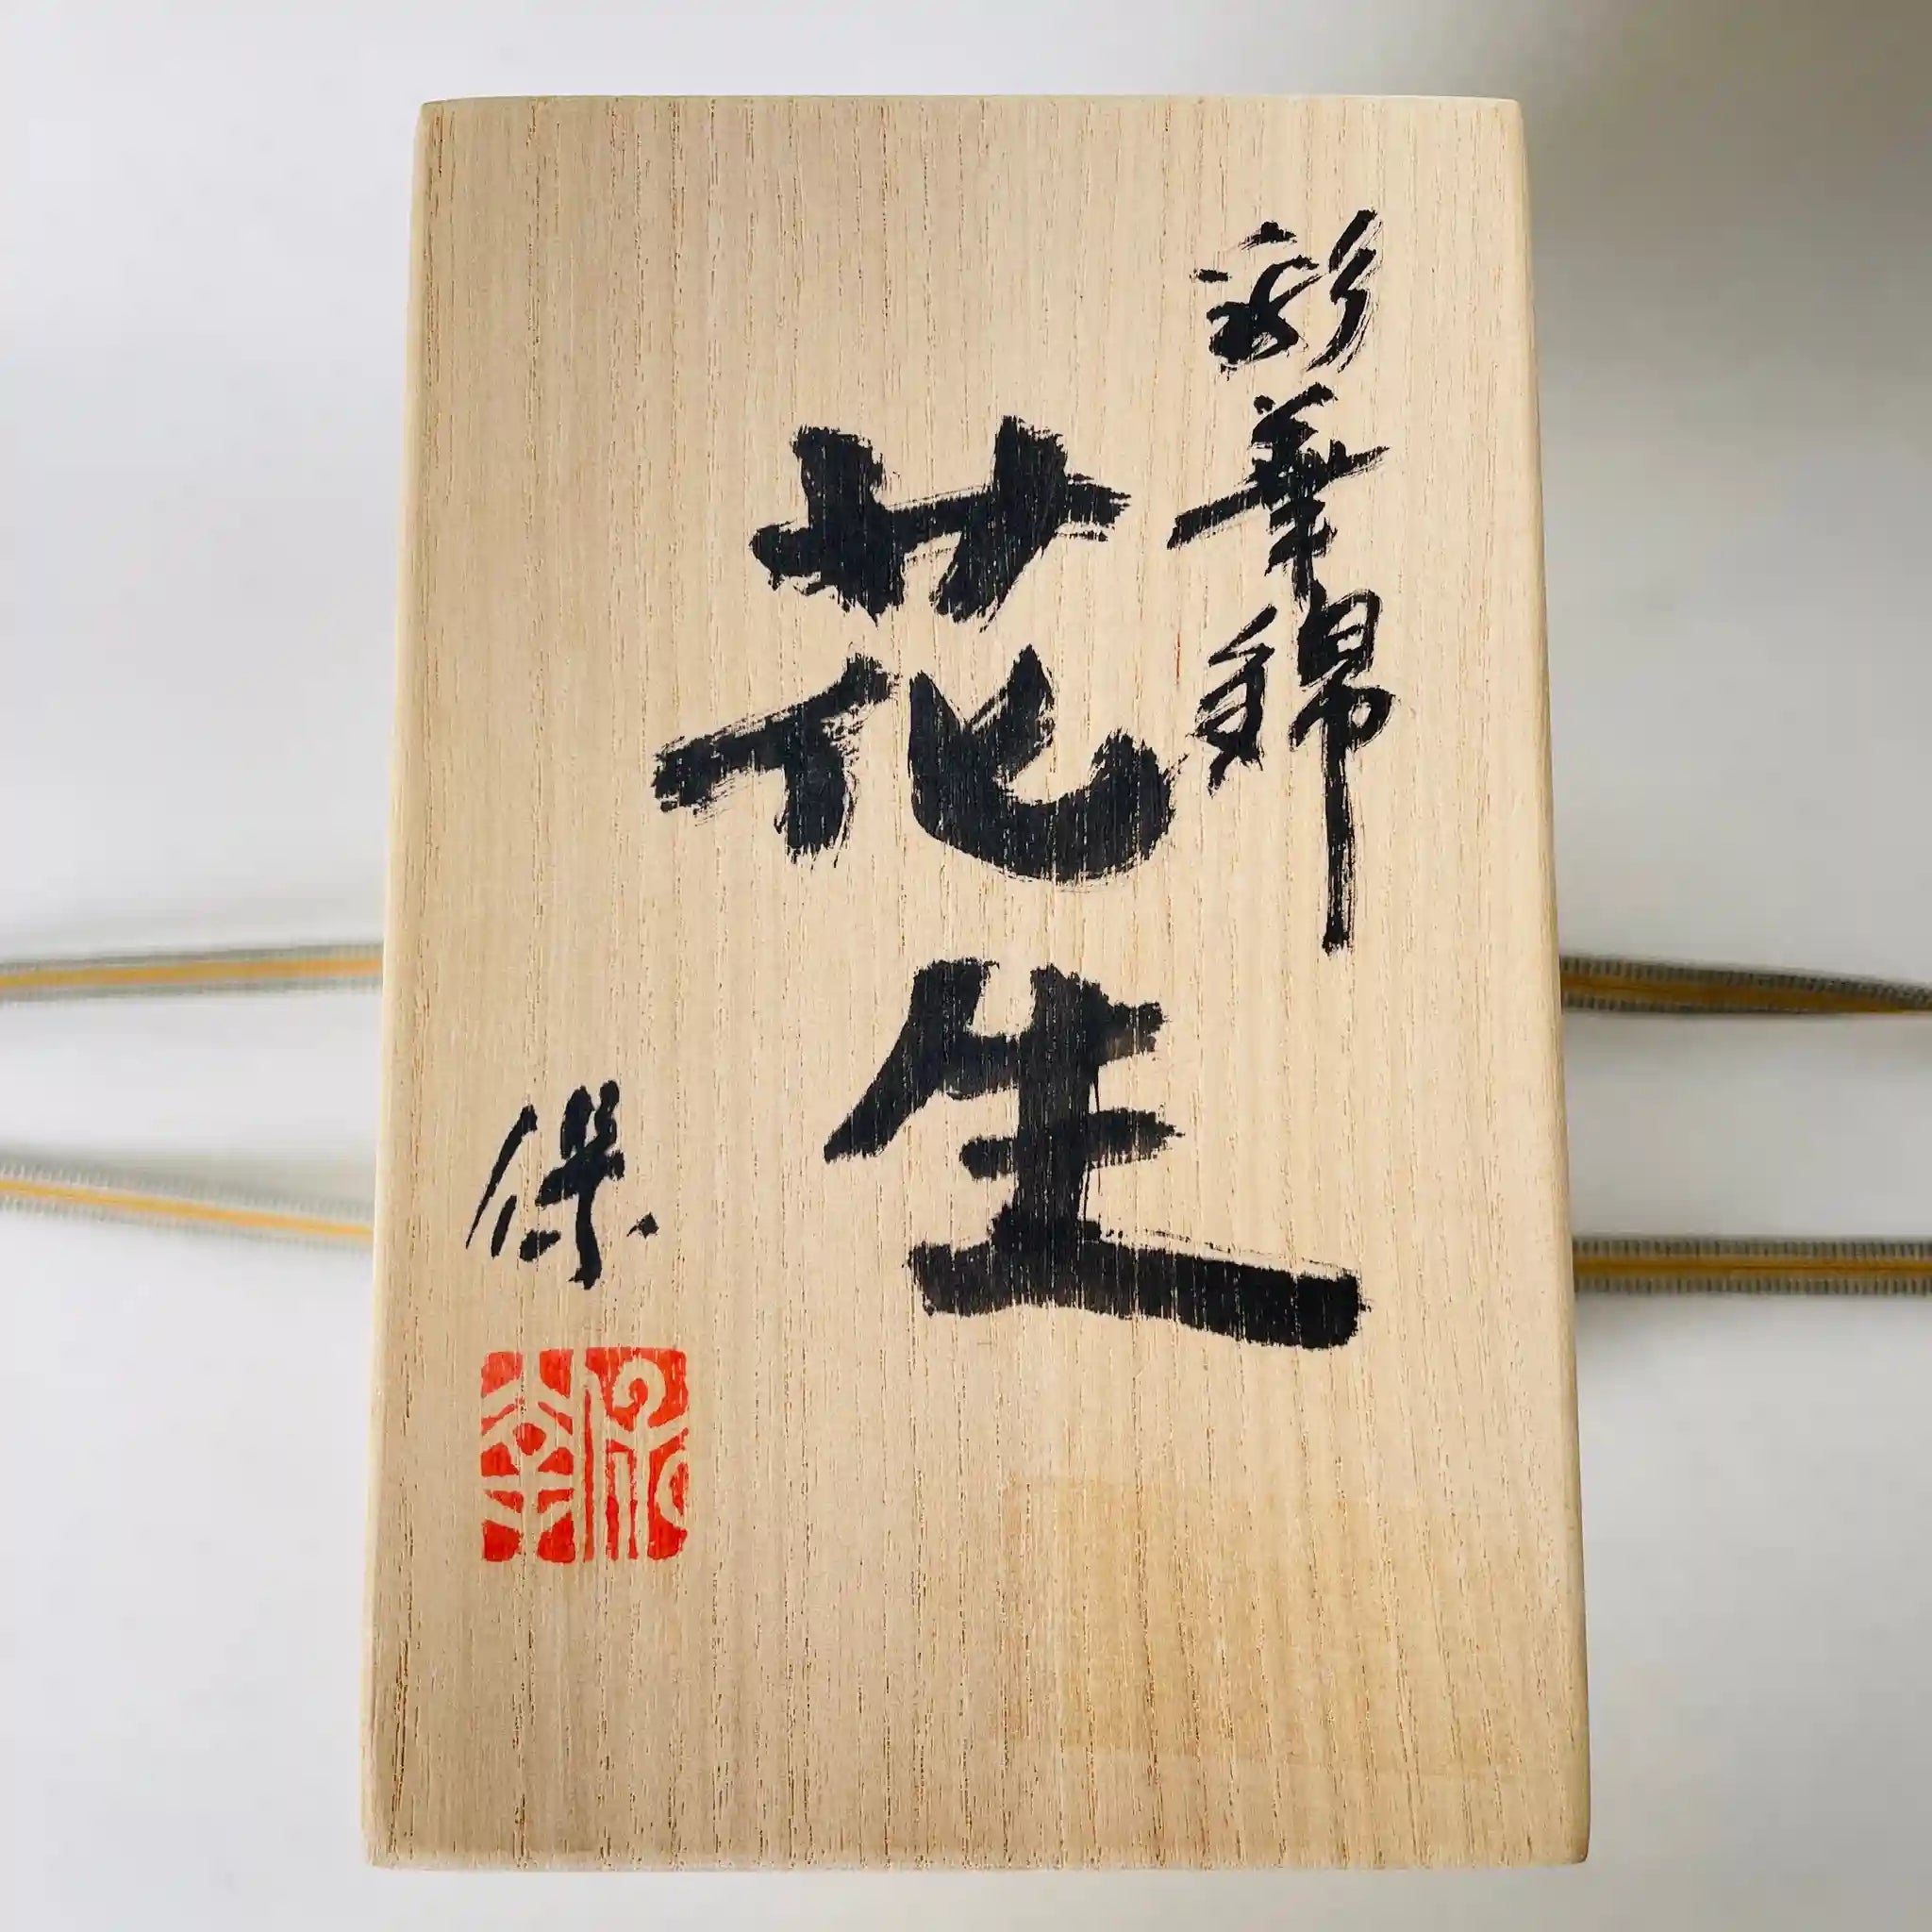 彩華錦
花生
保